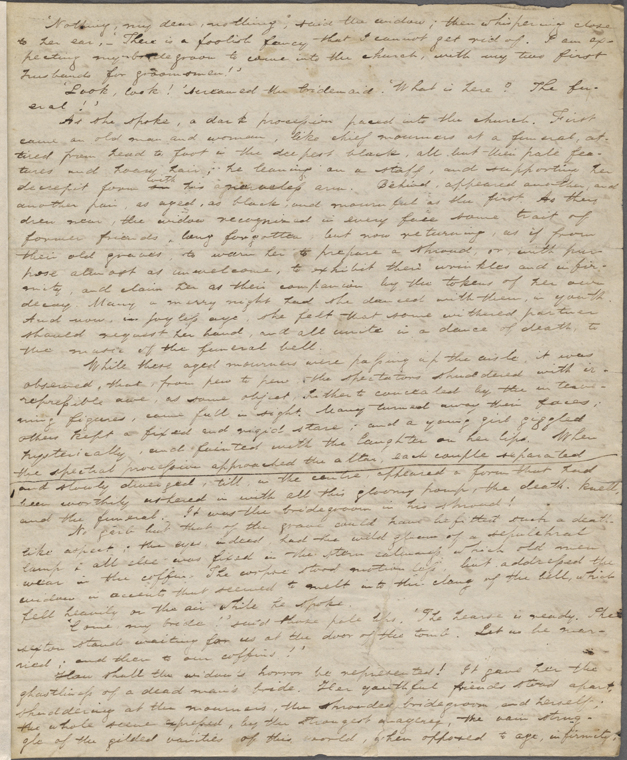 'Nothing, my dear, nothing', said the widow; then whispering close
to her ear,—'There is a foolish fancy that I cannot get rid of. I am ex-
pecting my bridegroom to come into the church, with my two first
husbands for groomsmen!'
'Look, look!' screamed the bridemaid. 'What is here? The fu-
neral!'
As she spoke, a dark procession paced into the church. First
came an old man and woman, like chief mourners at a funeral, at-
tired from head to foot in the deepest black, all but their pale fea-
tures and hoary hair; he leaning on a staff, and supporting her
decrepit form with his nerveless arm. Behind, appeared another, and
another pair, as aged, as black, and mournful as the first. As they
drew near, the widow recognized in every face some trait of
former friends, long forgotten, but now returning, as if from
their old graves, to warn her to prepare a shroud, or, with pur-
pose almost as unwelcome, to exhibit their wrinkles and infir-
mity, and claim her as their companion by the tokens of her own
decay. Many a merry night had she danced with them, in youth.
And now, in joyless age, she felt that some withered partner
should request her hand, and all unite in a dance of death, to
the music of the funeral bell.
While these aged mourners were passing up the aisle, it was
observed, that, from pew to pew, the spectators shuddered with ir-
repressible awe, as some object, hitherto concealed by the interve-
ning figures, came full in sight. Many turned away their faces;
others kept a fixed and rigid stare; and a young girl giggled
hysterically, and fainted with the laughter on her lips. When
the spectral procession approached the altar, each couple separated
and slowly diverged, till, in the centre, appeared a form that had
been worthily ushered in with all this gloomy pomp, the death-knell,
and the funeral. It was the bridegroom in his shroud!
No garb but that of the grave could have befitted such a death-
like aspect; the eyes, indeed, had the wild gleam of a sepulchral
lamp; all else was fixed in the stern calmness which old men
wear in the coffin. The corpse stood motionless, but addressed the
widow in accents that seemed to melt into the clang of the bell, which
fell heavily on the air while he spoke.
'Come, my bride!' said those pale lips. 'The hearse is ready. The
sexton stands waiting for us at the door of the tomb. Let us be mar-
ried; and then to our coffins!'
How shall the widow's horror be represented! It gave her the
ghastliness of a dead man's bride. Her youthful friends stood apart,
shuddering at the mourners, the shrouded bridegroom, and herself;
the whole scene expressed, by the strongest imagery, the vain strug-
gle of the gilded vanities of this world, when opposed to age, infirmity,